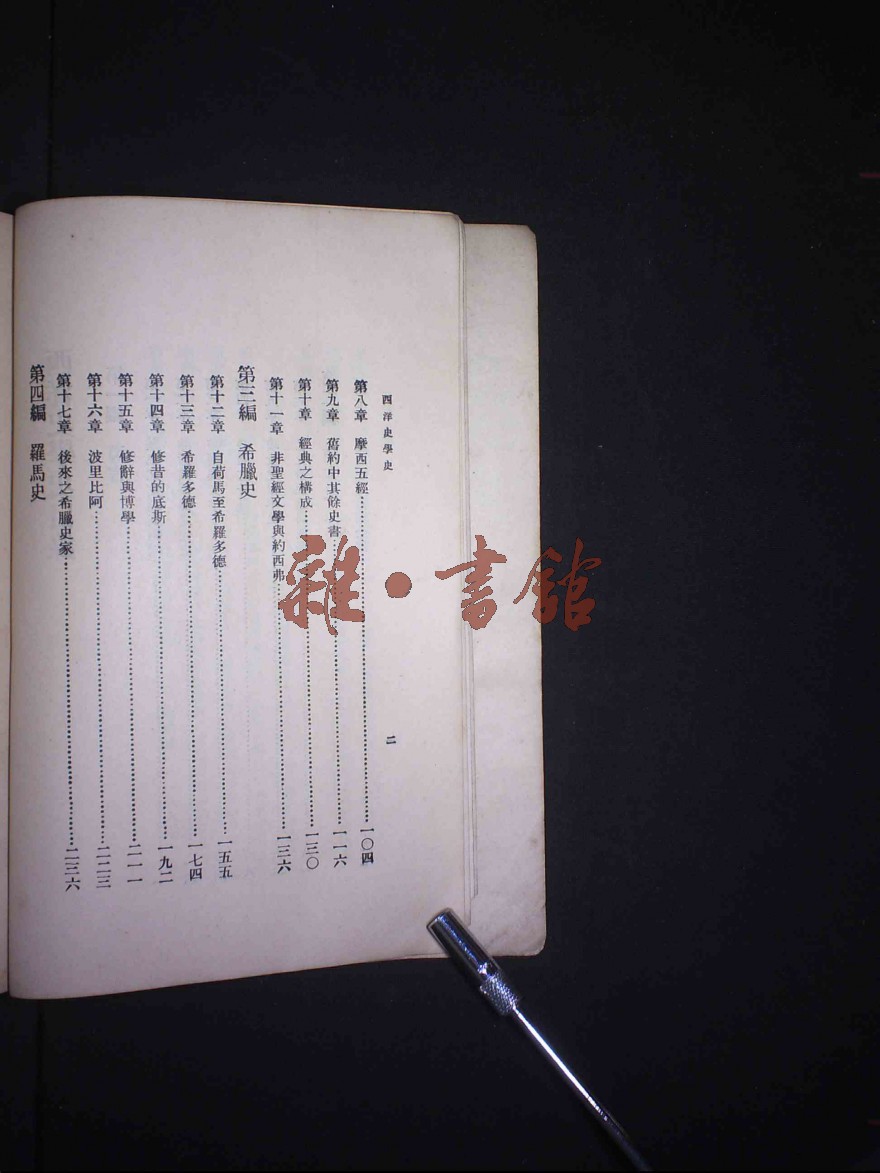 西洋史學史
二
第八章 摩西五經……一〇四
第九章 舊約中其餘史書……一一六
第十章 經典之構成……一三〇
第十一章 非聖經文學與約西弗……一三六
第三編 希臘史
第十二章 自荷馬至希羅多德……一五五
第十三章 希羅多德……一七四
第十四章 修昔的底斯……一九二
第十五章 修辭與博學……二一一
第十六章 波里比阿……二二三
第十七章 後來之希臘史家……二三六
第四編 羅馬史
雜·書館